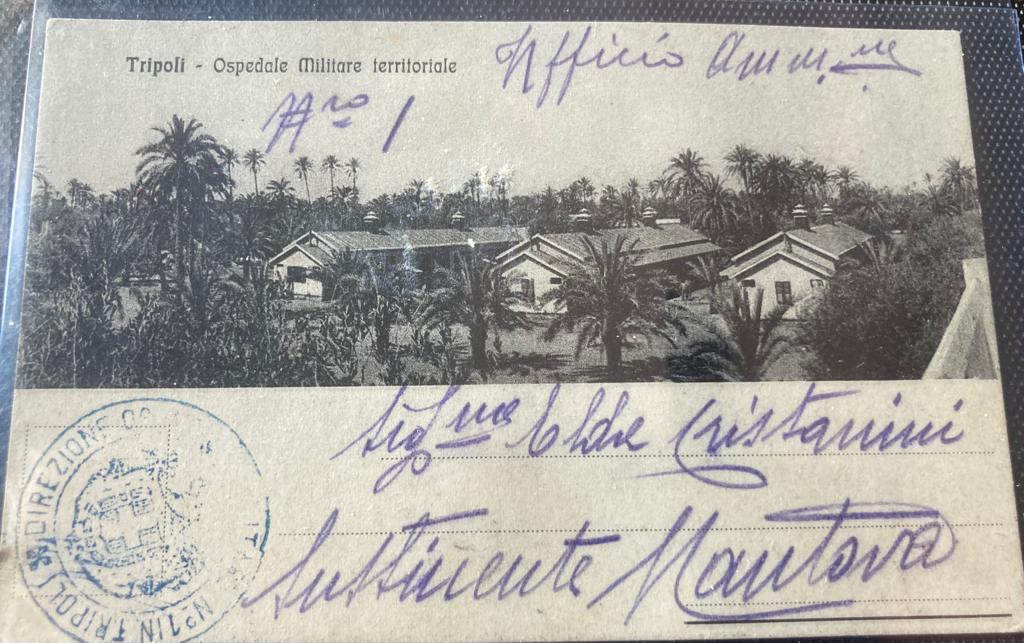 Tripoli - Ospedale Militare territoriale
Ufficio Amm.ne
Nro 1
Sig.na Elda Cristanini
Sustinente Mantova
DIREZIONE
No 1 IN TRIPOLI